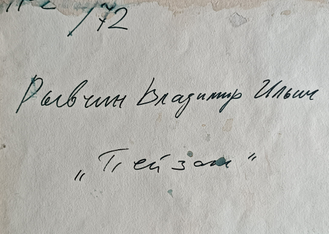 /72
Рывчин Владимир Ильич
„Пейзаж"